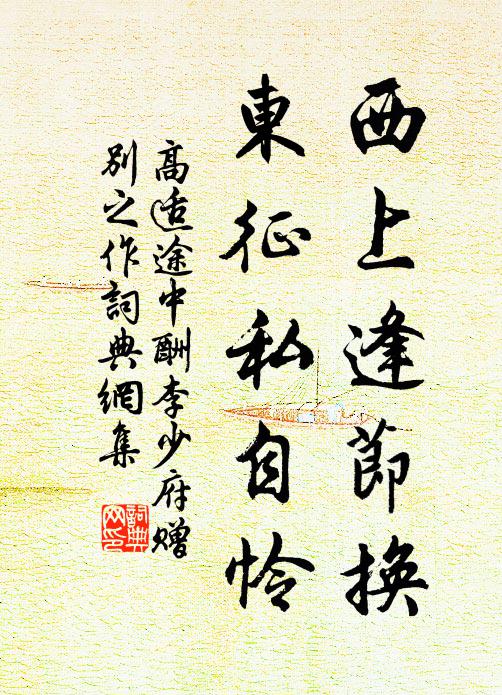 西上逢節換
東征私自怜
高适途中酬李少府贈
別之作詞典網集
詞典
网印